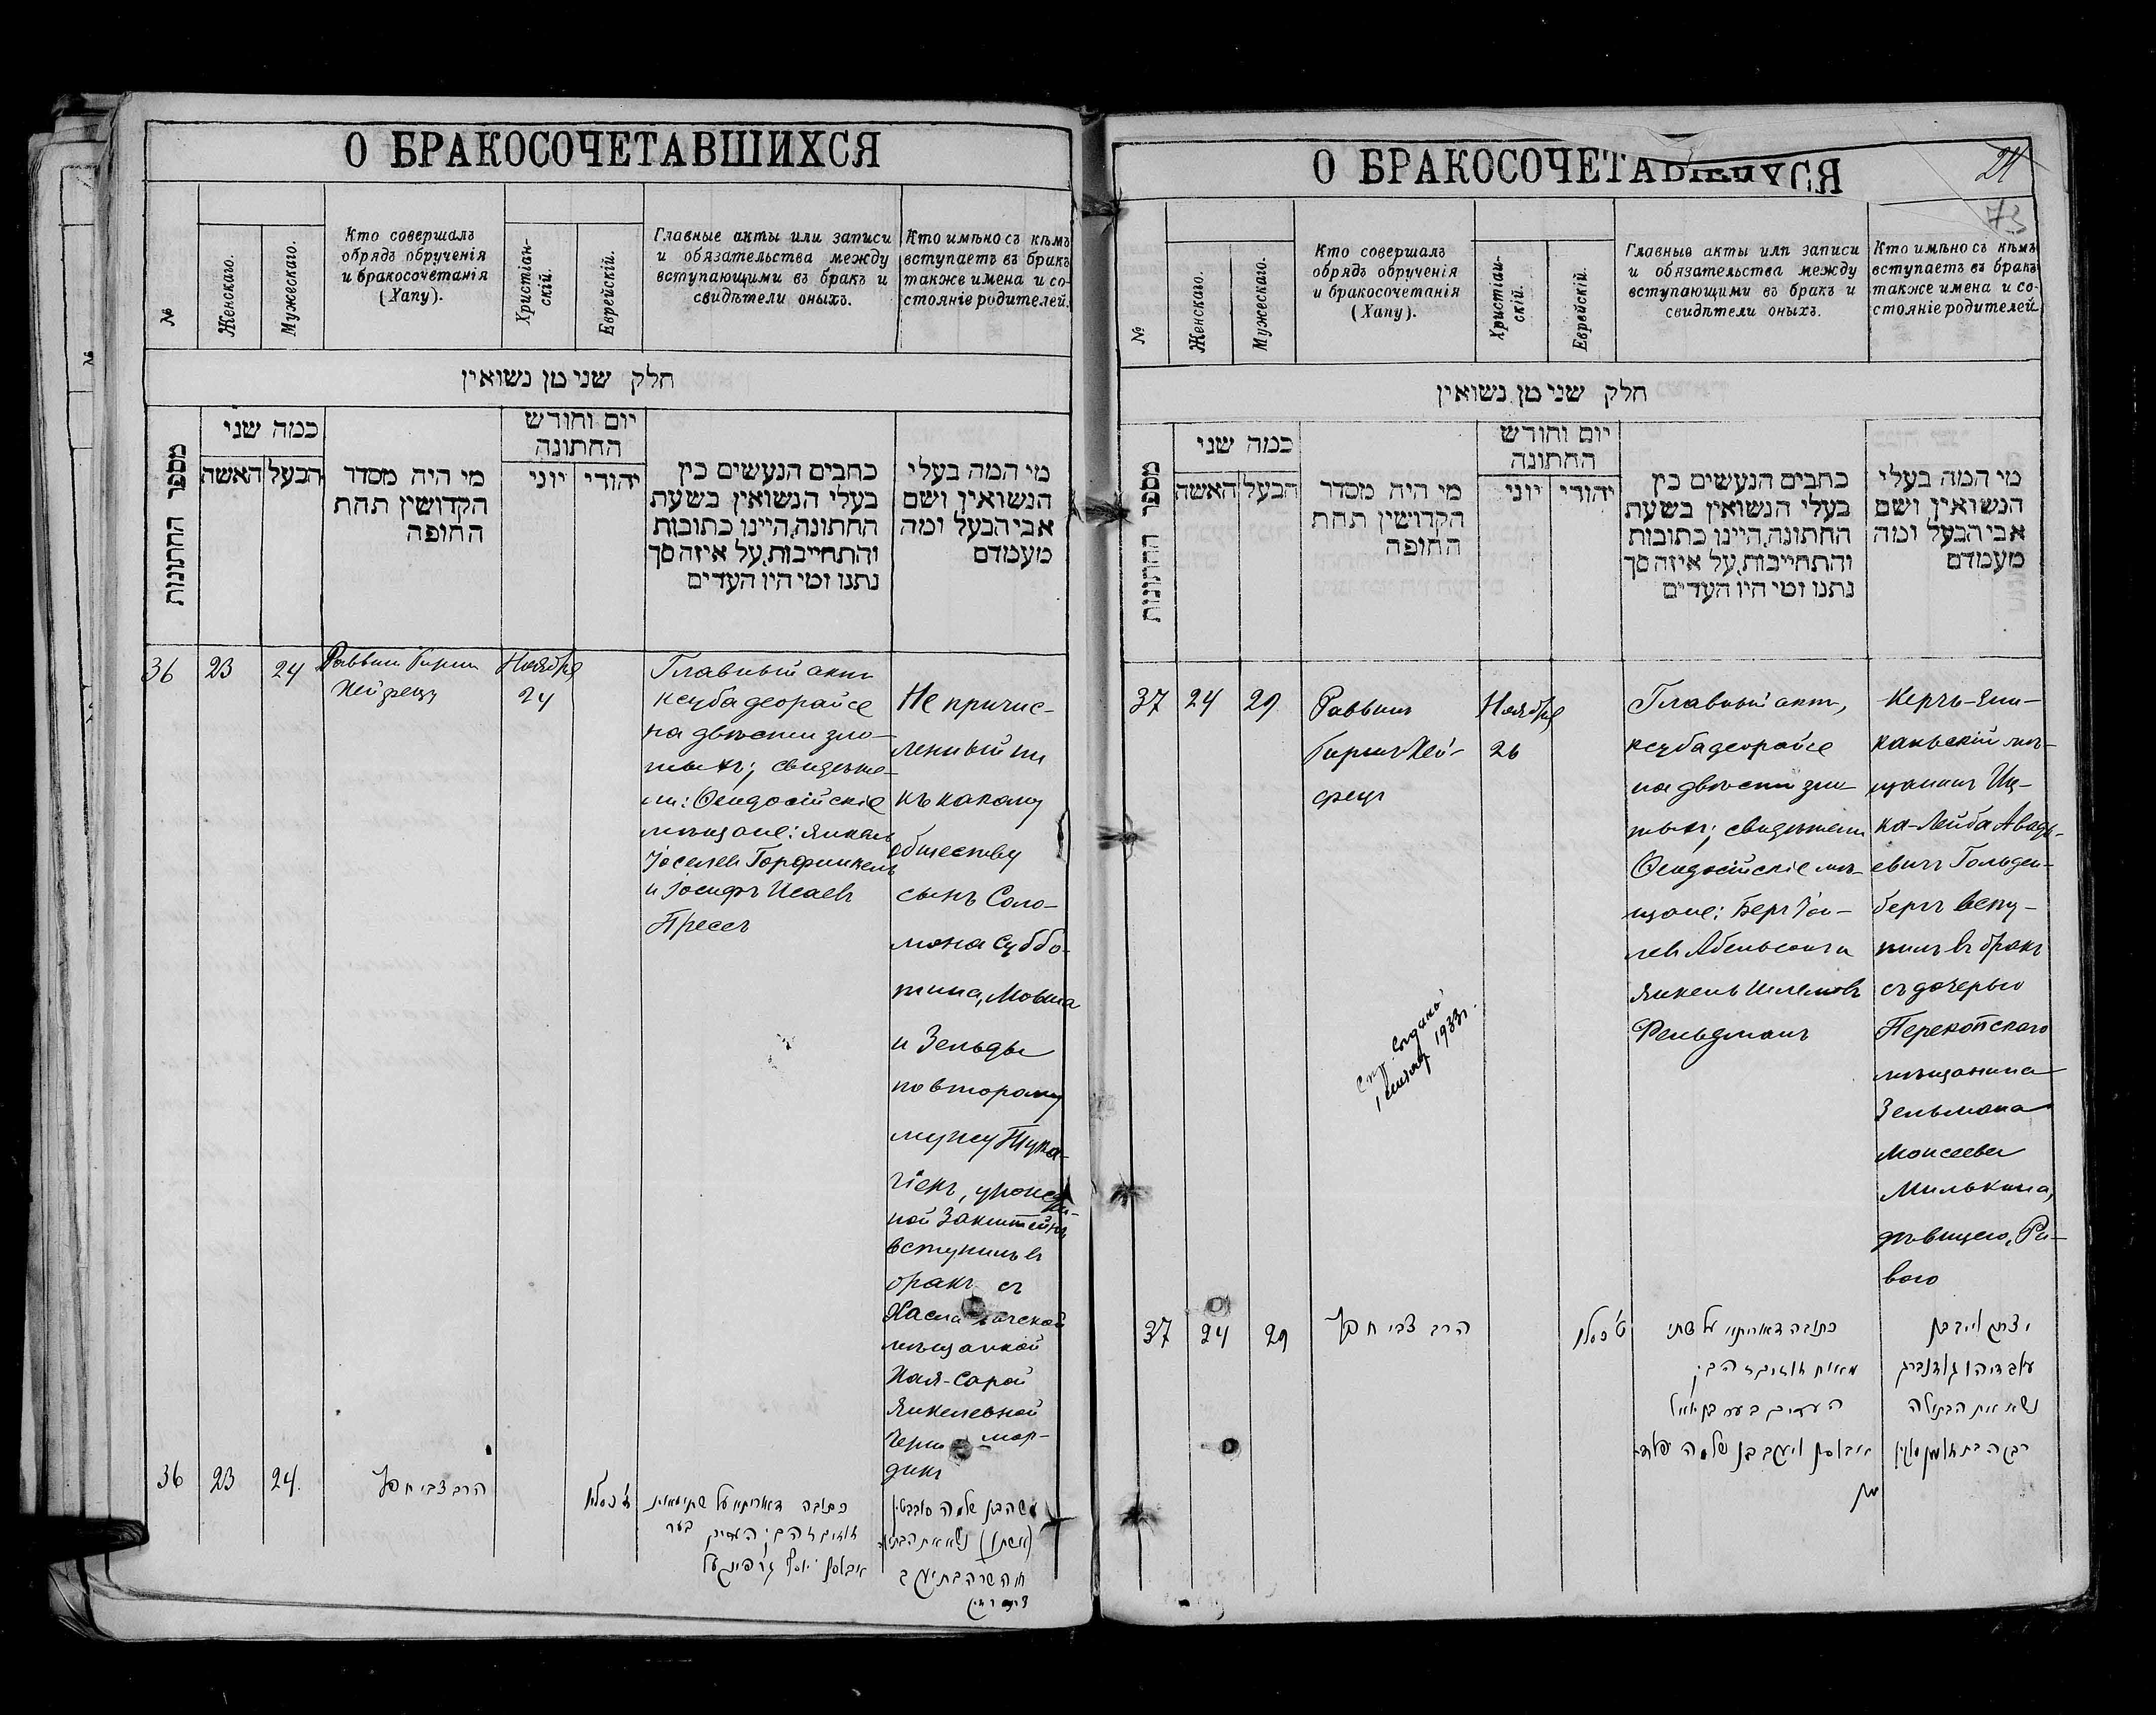 О БРАКОСОЧЕТАВШИХСЯ
№
Женскаго.
Мужескаго.
Кто совершалъ
обрядъ обрученія
и бракосочетанія
(Хапу).
Христіан-
скій.
Еврейскій.
Главные акты или записи
и обязательства между
вступающими въ бракъ и
свидѣтели оныхъ.
Кто имѣно съ кѣмъ
вступаетъ въ бракъ
также имена и со-
стояніе родителей.
חלק שני מן נשואין
מספר החתונות
כמה שני
האשה
הבעל
מי היה מסדר
הקדושין תחת
החופה
יום וחודש
החתונה
יוני
יהודי
כתבים הנעשים בין
בעלי הנשואין בשעת
החתונה, היינו כתובות
והתחייבות, על איזה סך
נתנו ומי היו העדים
מי המה בעלי
הנשואין ושם
אבי הבעל ומה
מעמדם
36
23
24
Раввинъ Гиршъ
Хейфецъ
Ноября
24
Главный актъ
ксуба деорайсе
на двѣсти зло-
тыхъ; свидѣте-
ли: Ѳеодосійскіе
мѣщане: Янкель
Іоселевъ Горфинкель
и Іосифъ Исаевъ
Прессъ
Не причис-
ленный ни
къ какому
обществу
сынъ Соло-
мона Суббо-
тина, Мовша
и Зельды
по второму
мужу
рожден-
ной Закштейнъ
вступилъ въ
бракъ съ
мѣщанкой
Хая-Сарой
Янкелевной
36
23
24.
הרב צבי חפץ
כסלו
כתובה דאורייתא על שתי מאות
זהובים העדים בער
אבלסון יוסף גרפינקעל
משה בן שלמה סובבטין
נשא את
חיה שרה בת יעקב
О БРАКОСОЧЕТАВШИХСЯ
24
73
№
Женскаго.
Мужескаго.
Кто совершалъ
обрядъ обрученія
и бракосочетанія
(Хапу).
Христіан-
скій.
Еврейскій.
Главные акты или записи
и обязательства между
вступающими въ бракъ и
свидѣтели оныхъ.
Кто имѣно съ кѣмъ
вступаетъ въ бракъ
также имена и со-
стояніе родителей.
חלק שני מן נשואין
מספר החתונות
כמה שני
האשה
הבעל
מי היה מסדר
הקדושין תחת
החופה
יום וחודש
החתונה
יוני
יהודי
כתבים הנעשים בין
בעלי הנשואין בשעת
החתונה, היינו כתובות
והתחייבות, על איזה סך
נתנו ומי היו העדים
מי המה בעלי
הנשואין ושם
אבי הבעל ומה
מעמדם
37
24
29
Раввинъ
Гиршъ Хей-
фецъ
Ноября
26
Главный актъ,
ксуба деорайсе
на двѣсти зло-
тыхъ; свидѣтели
Ѳеодосійскіе мѣ-
щане: Беръ Іои-
левъ Абельсонъ и
Янкель Шлемовъ
Фельдманъ
Керчь-Ени-
кальскій мѣ-
щанинъ Иц-
ка-Лейба Авадь-
евичъ Гольден-
бергъ всту-
пилъ въ бракъ
съ дочерью
Перекопскаго
мѣщанина
Зельмана
Моисеева
Милькина,
дѣвицею, Ри-
вою
1933г.
37
24
29
הרב צבי חפץ
ט׳ כסלו
כתובה דאורייתא על שתי
מאות זהובים
העדים בער בן יואל
אבלסון ויעקב בן שלמה פעלד-
מן
יצחק לייב בן
עובדיהו גאלדנברג
נשא את הבתולה
רבקה בת זלמן מילקין